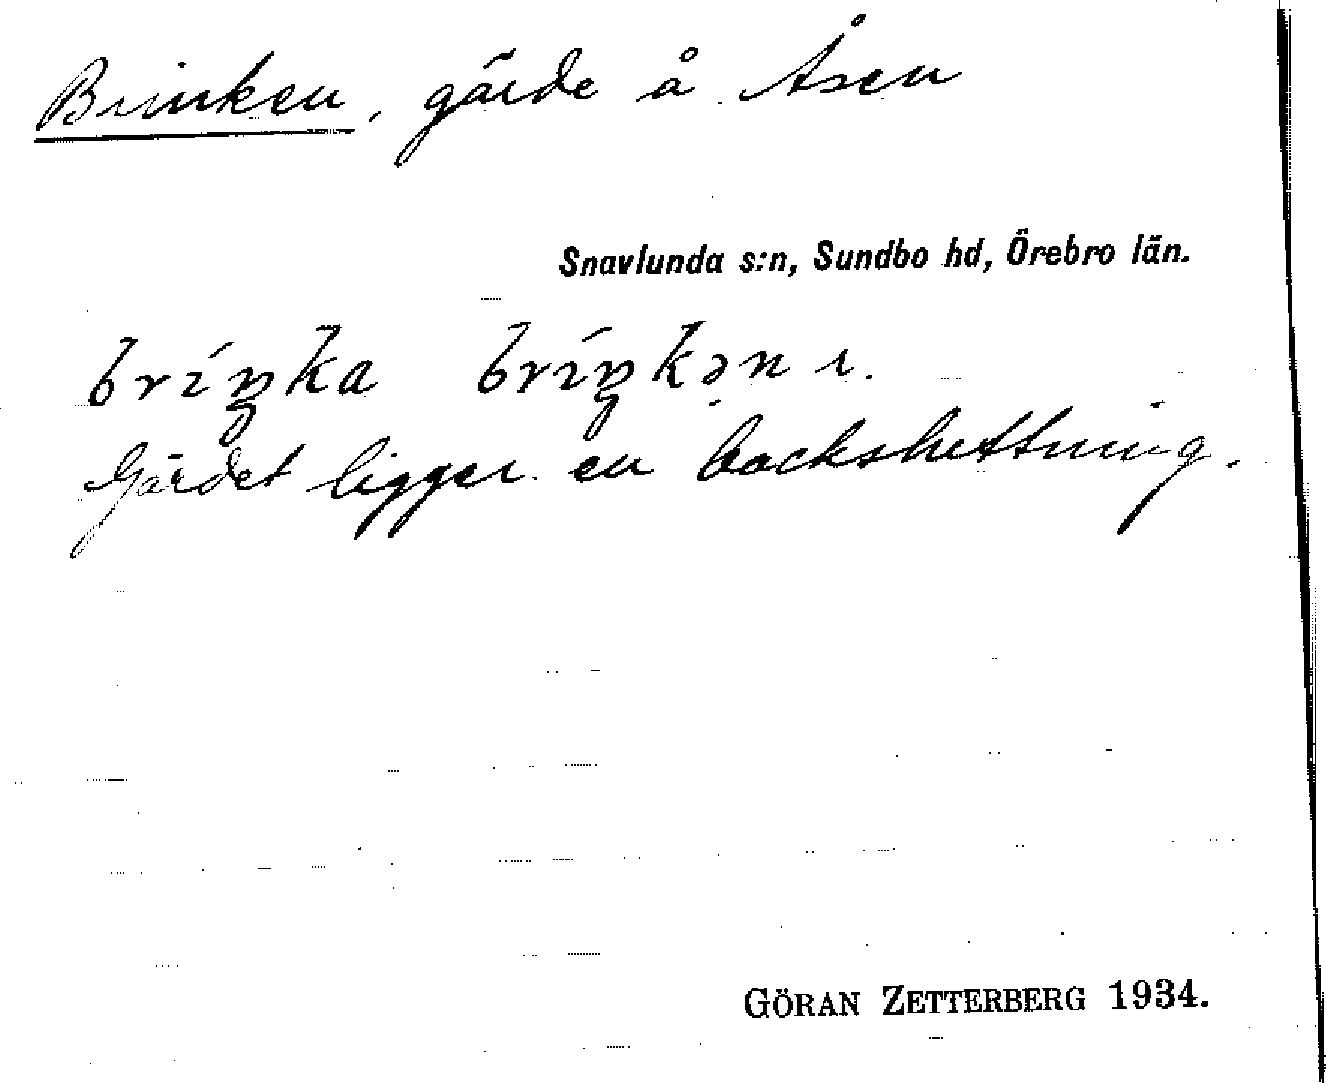 Brinken, gärde å Åsen
Snavlunda s:n, Sundbo hd, Örebro län.
bríŋka bríŋkən ɩ.
Gärdet ligger en backsluttning.
GÖRAN ZETTERBERG 1934.